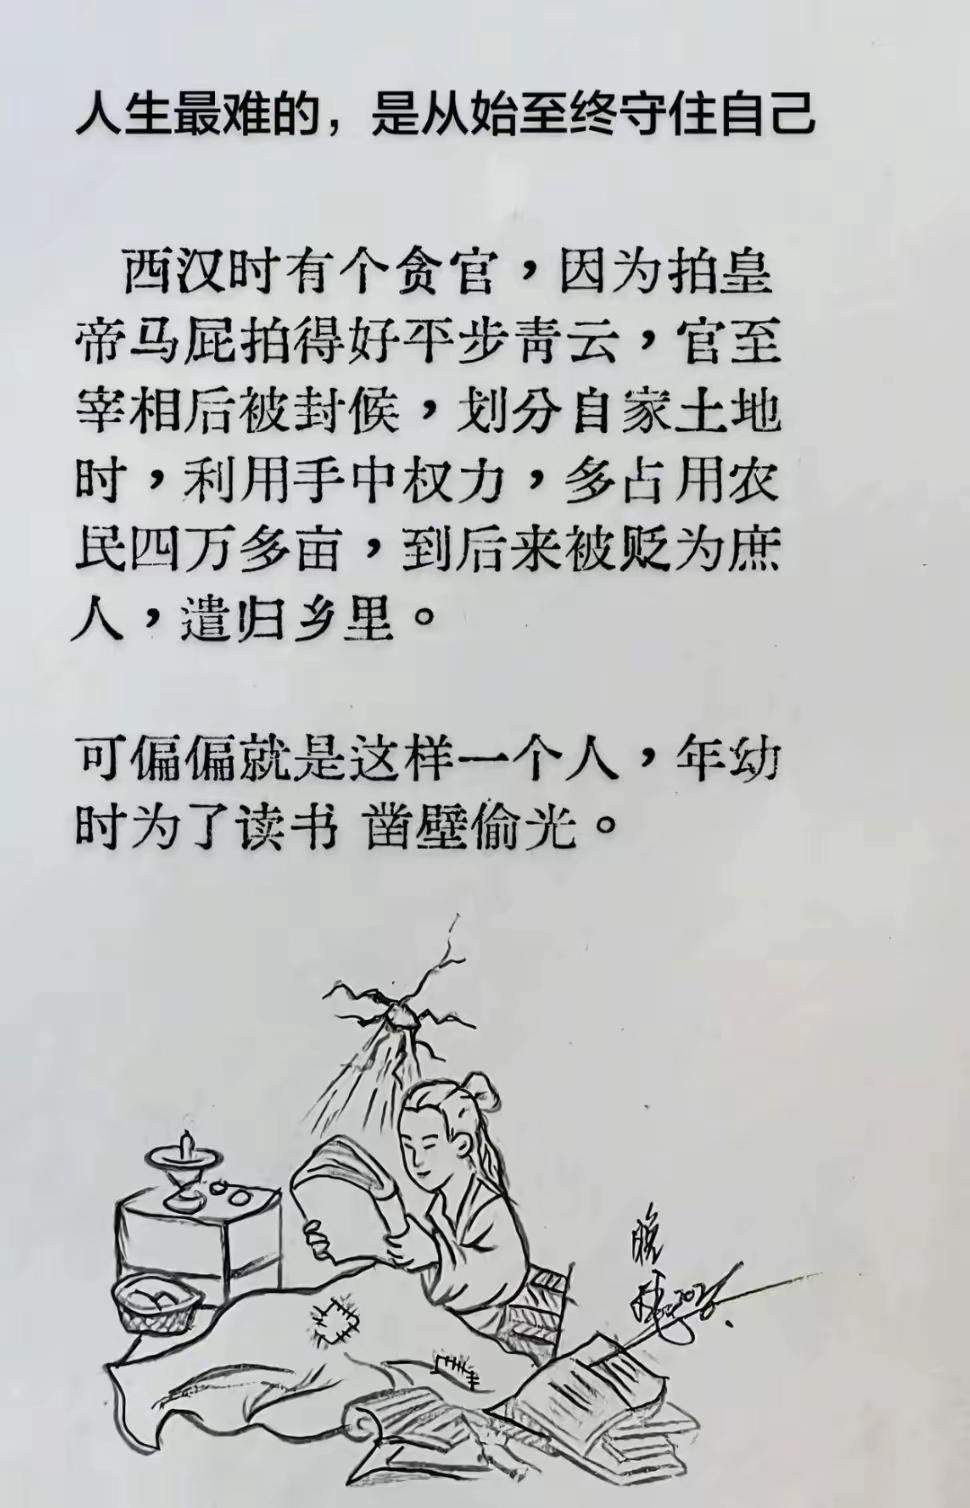 人生最难的，是从始至终守住自己
西汉时有个贪官，因为拍皇
帝马屁拍得好平步青云，官至
宰相后被封候，划分自家土地
时，利用手中权力，多占用农
民四万多亩，到后来被贬为庶
人，遣归乡里。
可偏偏就是这样一个人，年幼
时为了读书 凿壁偷光。
晚